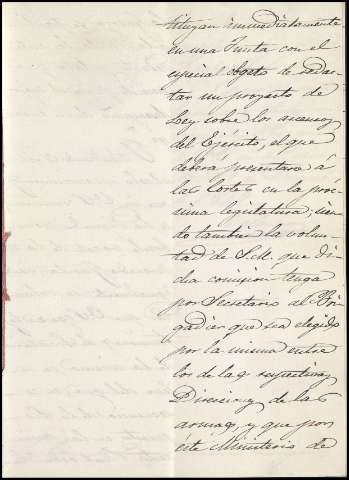 tituyan inmediatamente
en una Junta con el
especial objeto de redac-
tar un proyecto de
Ley sobre los ascensos
del Ejército, el que
deberá presentarse á
las Cortes en la pró-
sima legislatura; sien-
do tambien la volun-
tad de S.M. que di-
cha comision tenga
por Secretario al Bri-
gadier que sea elegido
por la misma entre
los de las respectivas
Direcciones de las
armas, y que por
éste Ministerio de